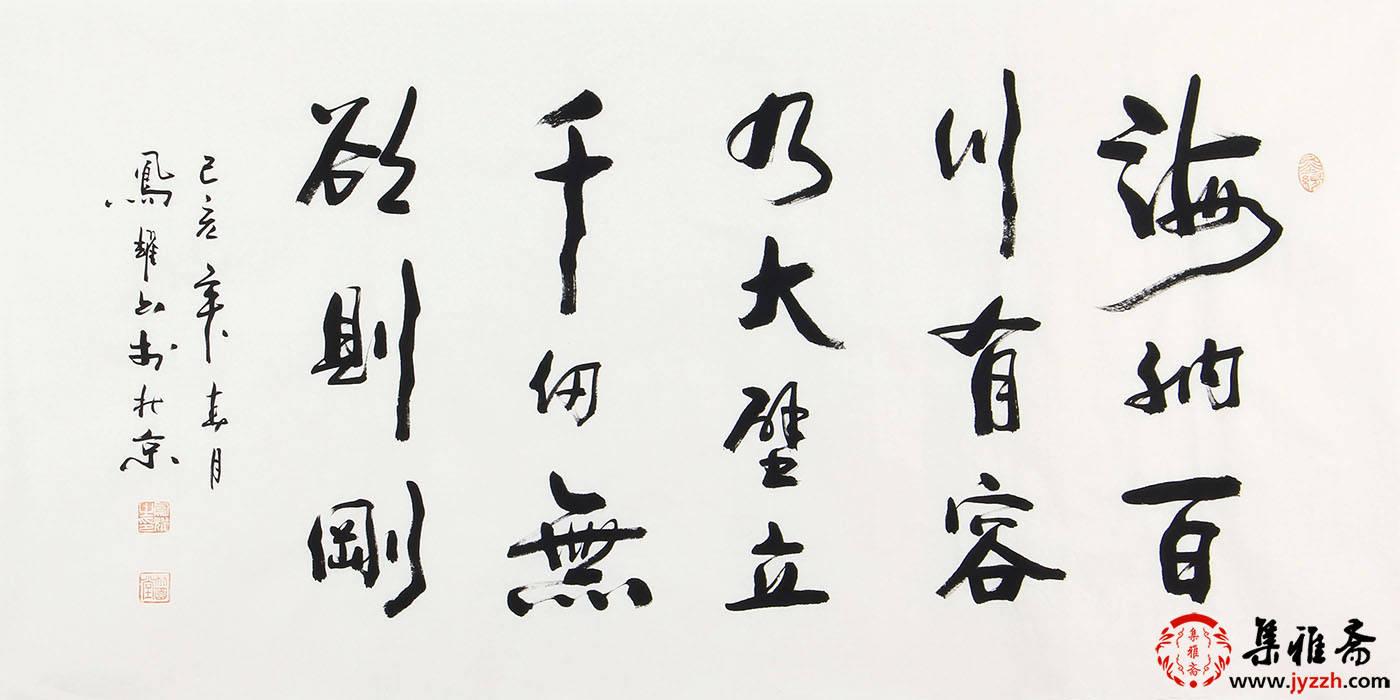 海納百
川有容
乃大壁立
千仞無
欲則剛
己亥年春月
鳳耀书於北京
集雅斋
集雅斋
www.jyzzh.com